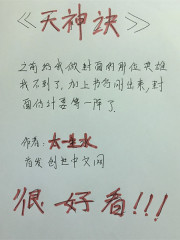 《天神诀》
之前给我做封面的那位英雄
找不到了,加上书名刚出来,封
面估计要等一阵了。
作者:太一生水
首发创世中文网
很好看!!!